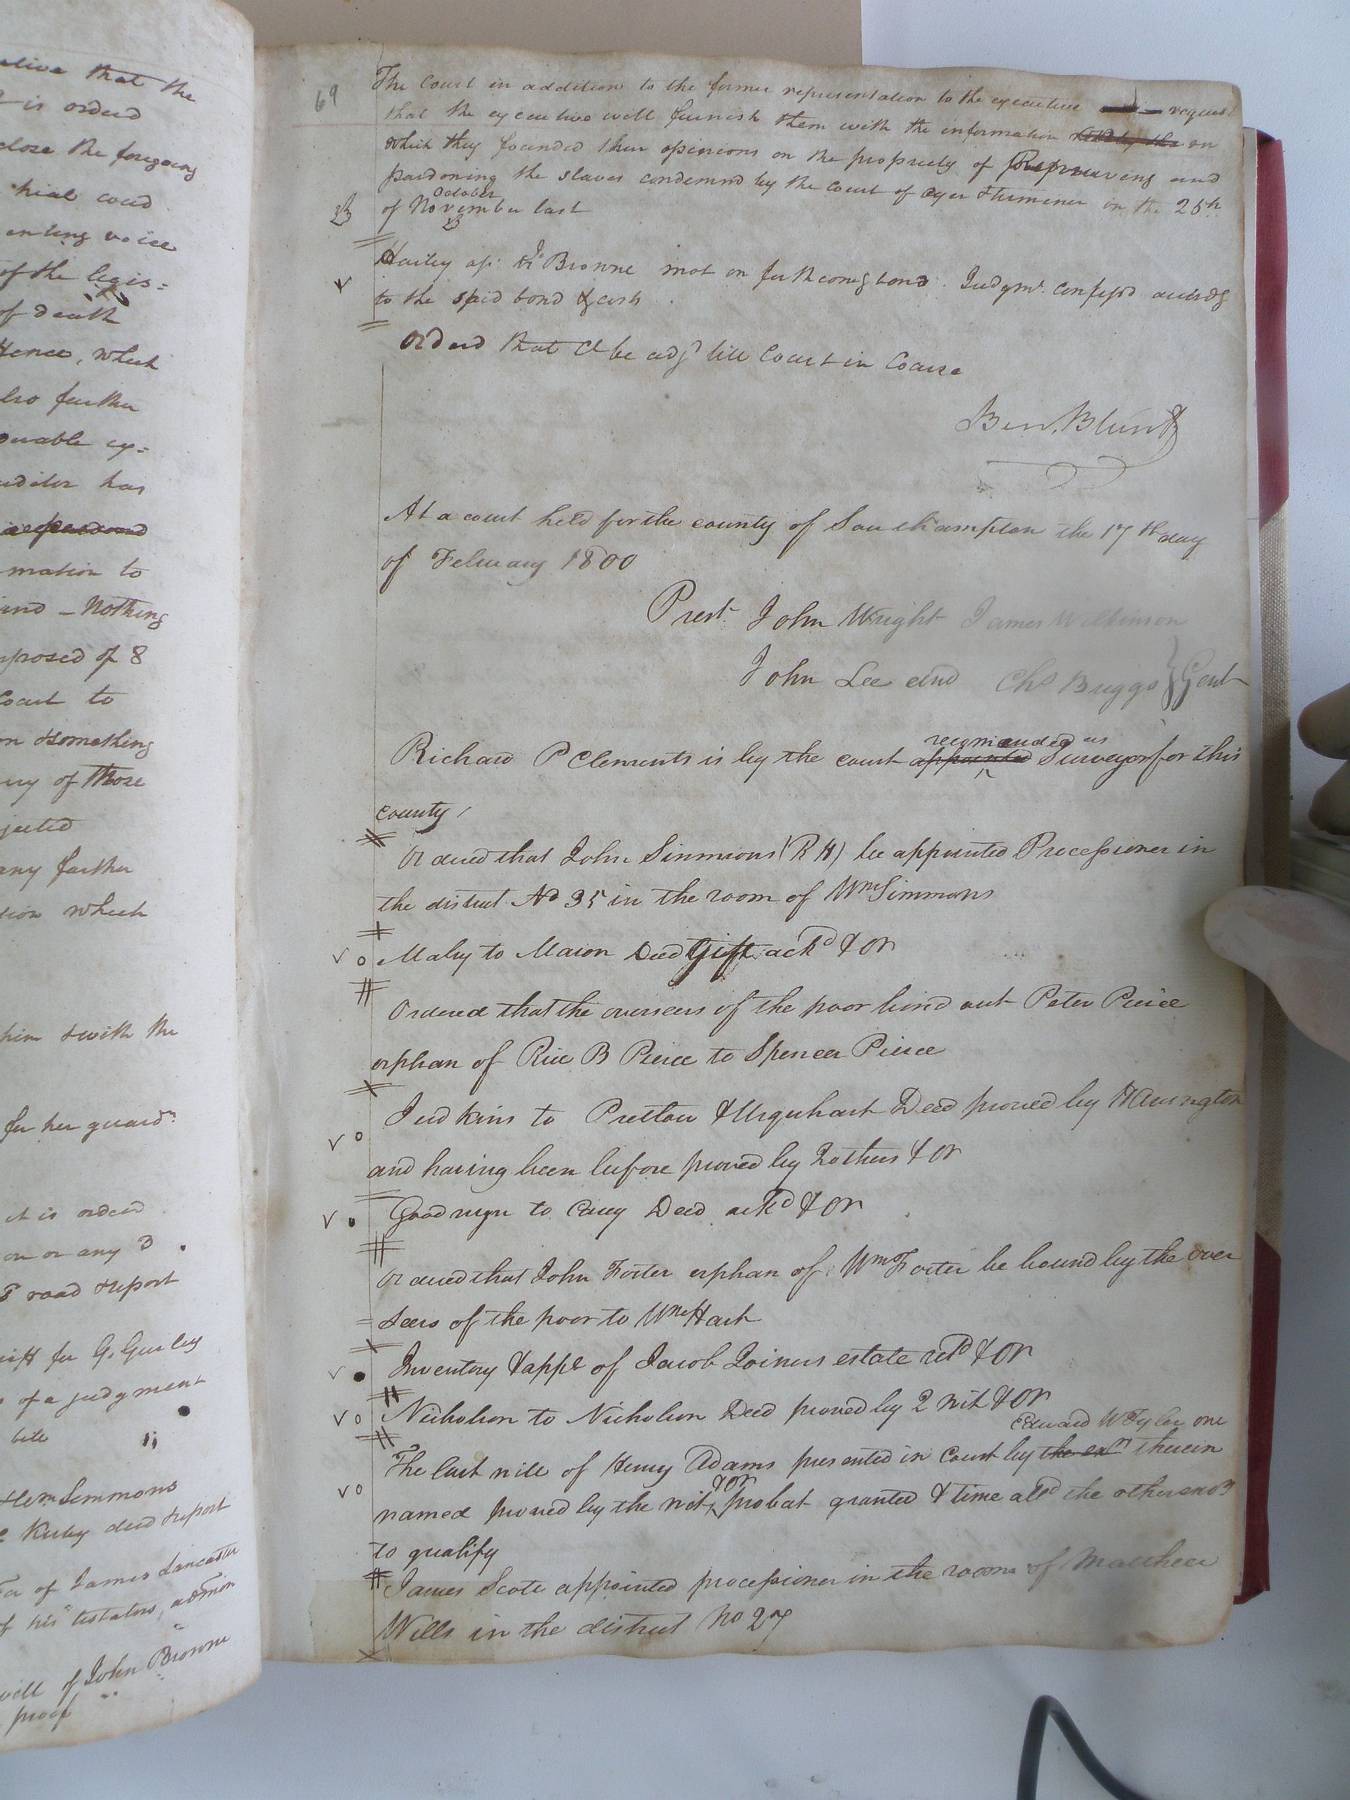 ative that the
is ordered
close the foregoing
hial coud
enting voice
of the legis=
of death
Hence, which
also further
ourable ex=
auditor has
mation to
ind - Nothing
mposed of 8
Court to
on & something
ury of those
jected
any farther
tion which
him & with the
for her guardn
it is orderd
on or any 3
road & report
for G. Gurley
s of a judgment
Wm Simmons
Kirby deed & report
of James Lancaster
of his testators, admon
will of John Browne
proof
69
The Court in addition to the former representation to the executive request
that the executive will furnish them with the information on
which they founded their openions on the propriety of Reprieving and
pardoning the slaves condemnd by the court of oyer & terminer in the 25th
October
of November last
Harley asse Jo Browne mot on forthcomg bond. Judgmt. confessd accordg
to the said bond & costs
Orderd that Ct be adjd till Court in Course
Ben. Blunt
At a court held for the county of Southampton the 17th day
of February 1800
Prest. John Wright James Wilkinson
John Lee and Chs Briggs } Gent
recomended as
Richard P Clements is by the court appointed Surveyor for this
county
Ordered that John Simmons (R H) be appointed Processioner in
the district No 35 in the room of Wm Simmons
Maley to Mason Deed Gift ackd & OR
Ordered that the overseers of the poor bind out Peter Pierce
orphan of Rice B Pierce to Spencer Pierce
Judkins to Pretlow & Urquhart Deed proved by Harrington
and having been before proved by 2 others & OR
Goodwyn to Cary Deed ackd & OR
Ordered that John Foster orphan of Wm Foster be bound by the over
seers of the poor to Wm Hart
Inventory & appt of Jacob Joiners estate retd & OR
Nicholson to Nicholson Deed proved by 2 wit & OR
Edward W Tyler one
The last will of Henry Adams presented in Court by the exr therein
& OR
named proved by the wits, probat granted & time alld the others
to qualify
James Scott appointed processioner in the room of Matthew
Wills in the district No 27